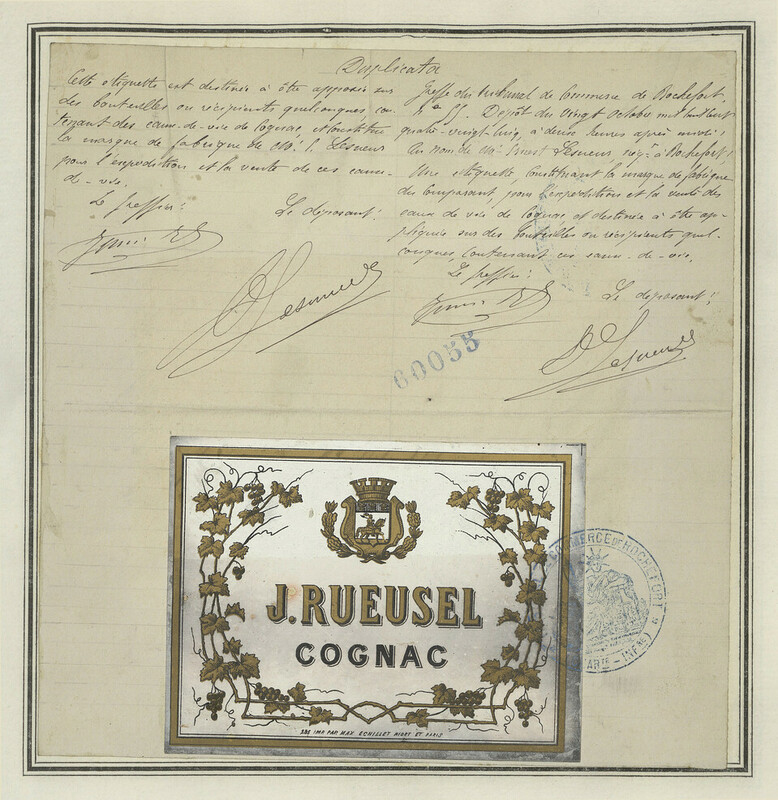 Duplicata
Cette étiquette est destinée à être apposée sur
des bouteilles ou récipients quelconques con-
tenant des eaux-de-vie de Cognac, et constitue
la marque de fabrique de Mr. E. Lesueur
pour l'expédition et la vente de ces eaux-
de-vie.
Le greffier:
Le déposant:
Lesueur
Greffe du tribunal de Commerce de Rochefort,
Dépôt du vingt Octobre mil huit cent
quatre-vingt-cinq, à deux heures après midi:
Au nom de Mr Ernest Lesueur, nég. à Rochefort:
Une étiquette, constituant la marque de fabrique
du comparant pour l'expédition et la vente des
eaux de vie de Cognac, et destinée à être ap-
pliquée sur des bouteilles ou récipients quel-
conques, contenant ces eaux-de-vie.
Le greffier:
Le déposant:
Lesueur
60055
J. RUEUSEL
COGNAC
IMP PAR MAX ECHILLET NIORT ET PARIS
COMMERCE DE ROCHEFORT S
INFRE)